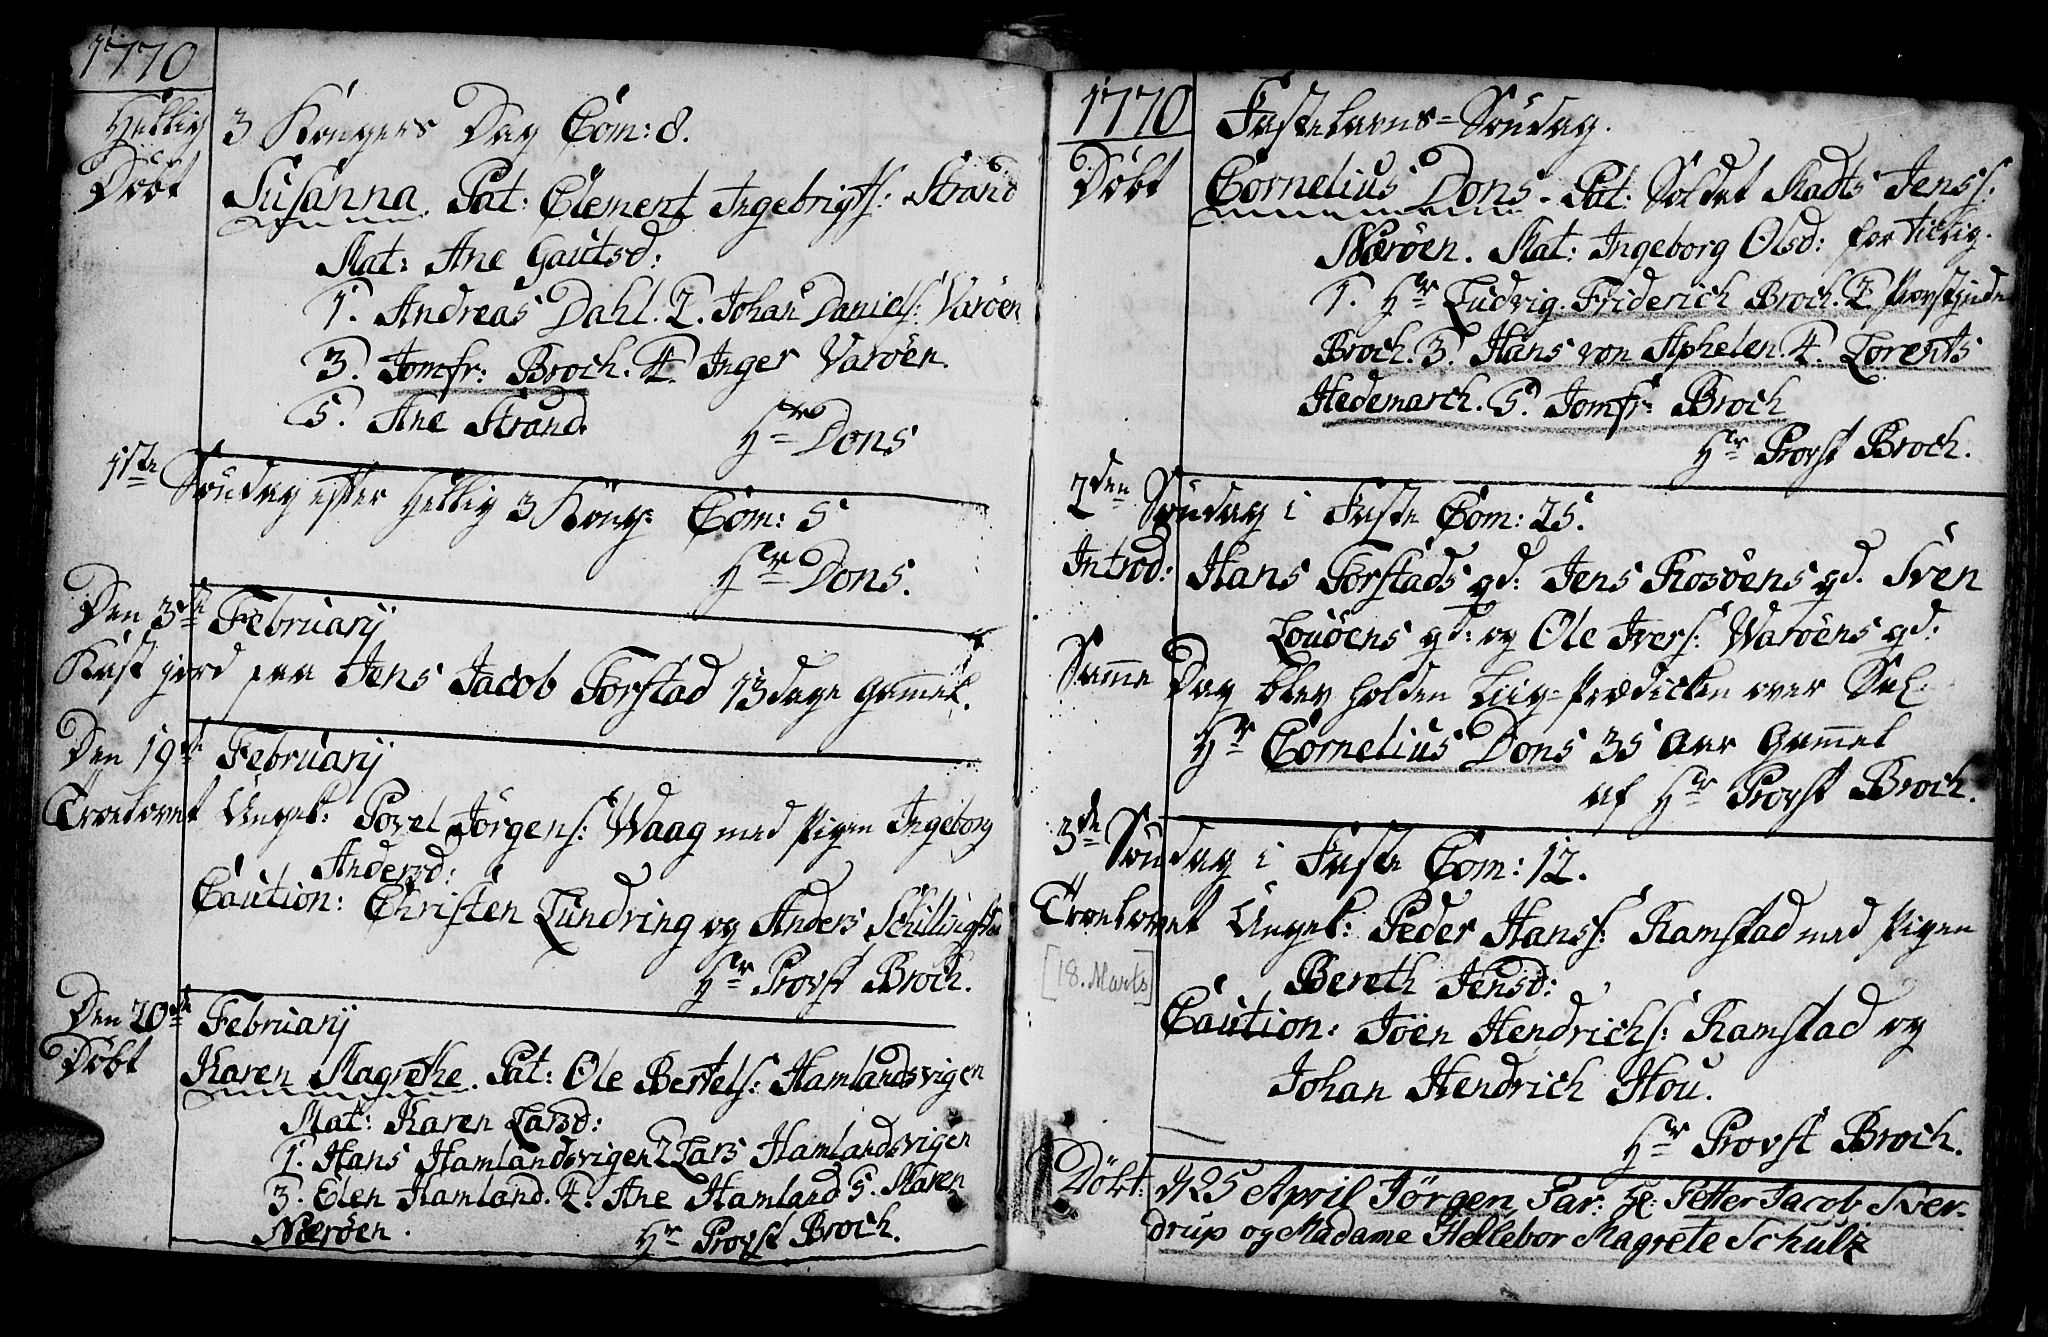 1770
Hellig 3 Kongers Dag Com: 8.
Döbt
Susanna. Pat: Clement Ingebrigts: Strand
Mat: Ane Gautsd:
1. Andreas Dahl. 2. Johan Daniels: Varöen
3. Jomfr: Broch. 4. Inger Varöen.
5. Ane Strand.
Hr Dons
1ste Söndag efter Hellig 3 Kong: Com: 5
Hr Dons.
Den 3de Februarij
Kast giord paa Jens Jacob Forstad 13 dage Gammel.
Den 19de Februarij
Troelovet Ungk: Povel Jörgens: Waag med Pigen Ingeborg
Andersd:
Caution: Christen Lundring og Anders Schillingst
Hr Provst Broch.
Den 20de Februarij
Döbt
Karen Magrethe. Pat: Ole Bertels: Hamlandsvigen
Mat: Karen Larsd:
1. Hans Hamlandsvigen 2 Lars Hamlandsvigen
3. Elen Hamland. 4. Ane Hamland 5. Maren
Næröen.
Hr Provst Broch.
1770
Fastelavns=Söndag.
Döbt
Cornelius Dons. Pat: Soldat Madts Jenss:
Næröen. Mat: Ingeborg Olsd: for tilig.
1. Hr Ludvig Friderich Broch. 2. Provstinde
Broch. 3. Hans von Aphelen. 4. Lorents
Hedemarch. 5. Jomfr: Broch
Hr Provst Broch.
2den Söndag i Faste Com: 25.
Introd: Hans Forstads qd: Jens Rosöens qd. Sven
Louöens qd: og Ole Ivers: Waröens qd:
Samme Dag blev holden Liig=Prædicken over Sal:
Hr Cornelius Dons 35 Aar Gammel
af Hr Provst Broch.
3de Söndag i Faste Com: 12.
Troelovet Ungk: Peder Hanss: Ramstad med Pigen
Bereth Jensd:
[18. Marts]
Caution: Joen Hendrichs: Ramstad og
Johan Hendrich Hou.
Hr Provst Broch.
Döbt: d 25 April Jörgen, Par: Hr: Petter Jacob Sver-
drup og Madame Hellebor Magrete Schulz